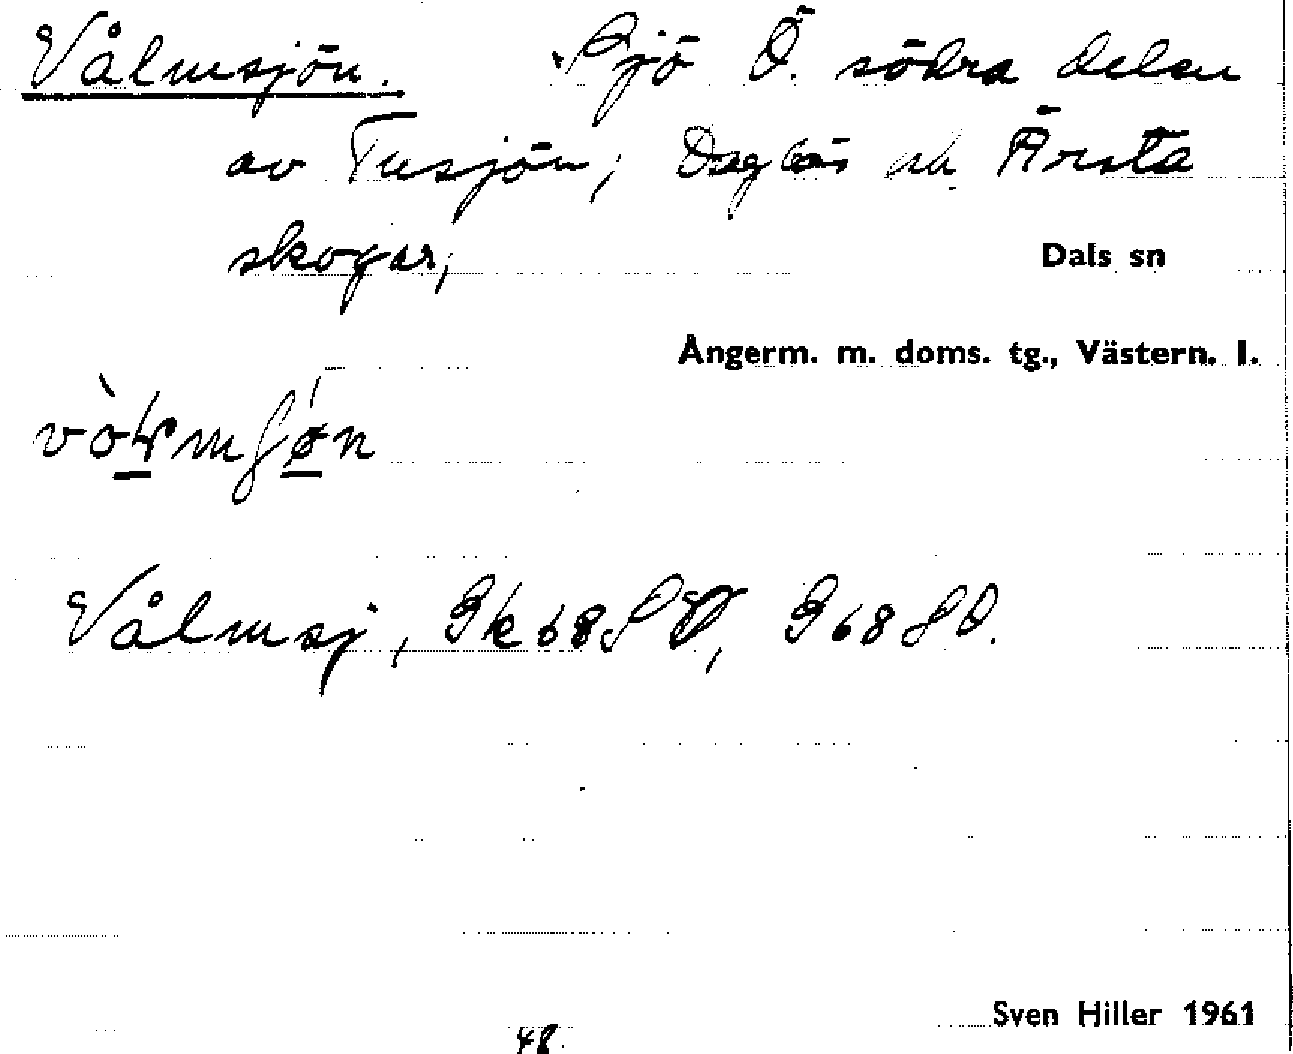 Vålmsjön. Sjö Ö. södra delen
av Tusjön, Dagbäs och Ärsta
skogar,
Dals sn
Ångerm. m. doms. tg., Västern. l.
Vålmsj, Gk 68 SV, G 68 SO.
Sven Hiller 1961
48.